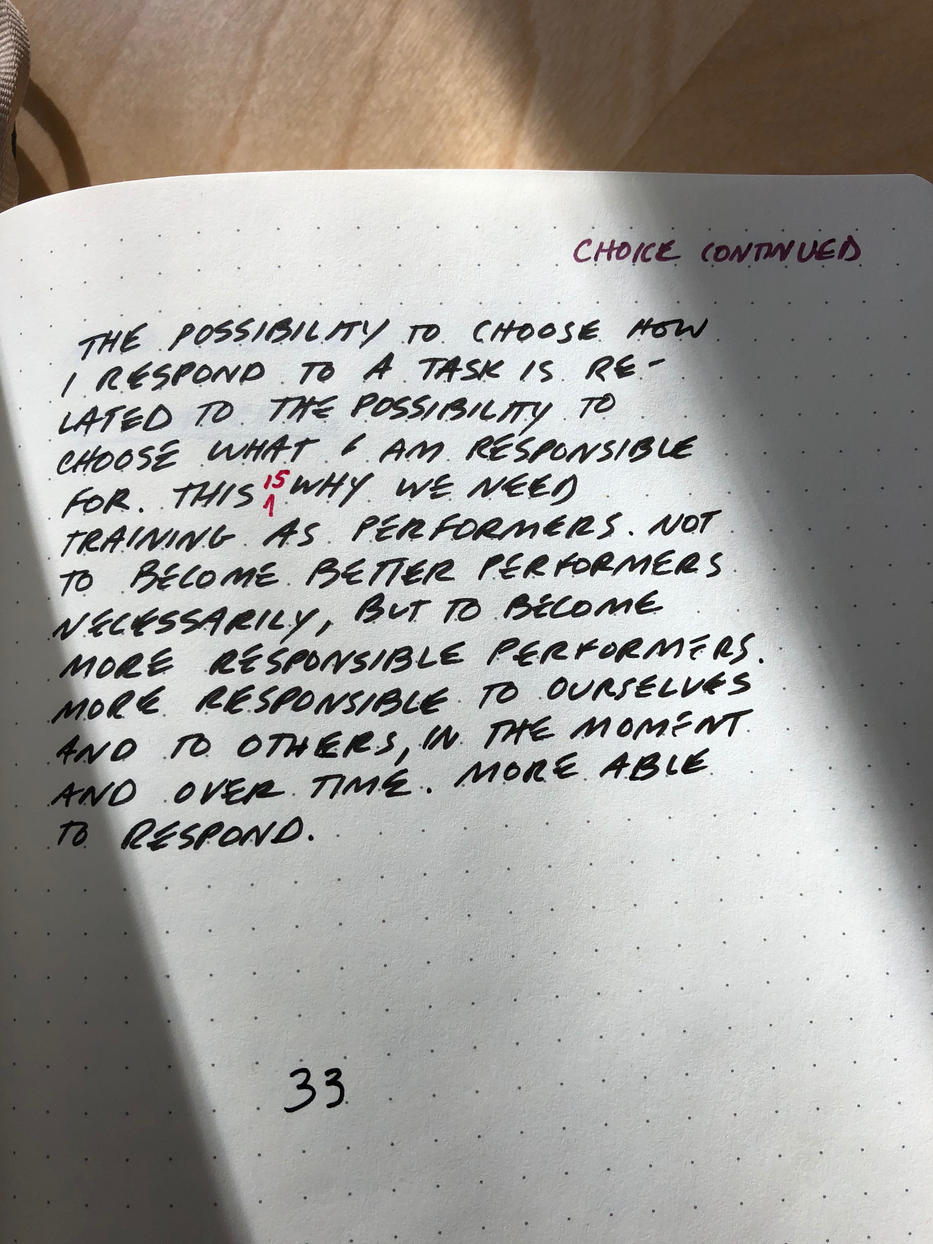 CHOICE CONTINUED
THE POSSIBILITY TO CHOOSE HOW
I RESPOND TO A TASK IS RE-
LATED TO THE POSSIBILITY TO
CHOOSE WHAT I AM RESPONSIBLE
FOR. THIS IS WHY WE NEED
TRAINING AS PERFORMERS. NOT
TO BECOME BETTER PERFORMERS
NECESSARILY, BUT TO BECOME
MORE RESPONSIBLE PERFORMERS.
MORE RESPONSIBLE TO OURSELVES
AND TO OTHERS, IN THE MOMENT
AND OVER TIME. MORE ABLE
TO RESPOND.
33